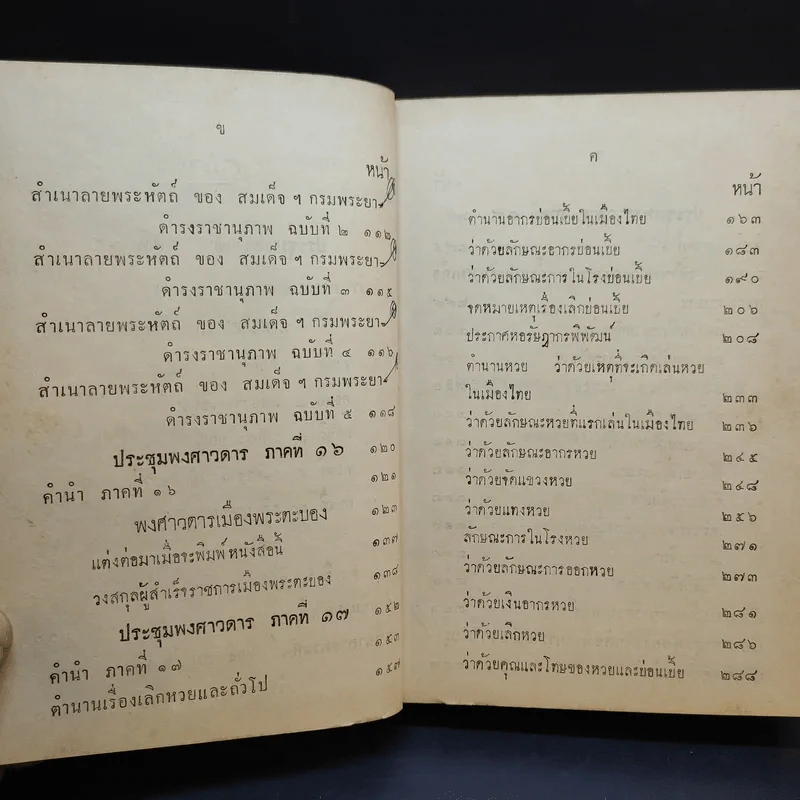 ข
หน้า
สำเนาลายพระหัตถ์ ของ สมเด็จ ฯ กรมพระยา
ดำรงราชานุภาพ ฉบับที่ ๒ ๑๑๒
สำเนาลายพระหัตถ์ ของ สมเด็จ ฯ กรมพระยา
ดำรงราชานุภาพ ฉบับที่ ๓ ๑๑๕
สำเนาลายพระหัตถ์ ของ สมเด็จ ฯ กรมพระยา
ดำรงราชานุภาพ ฉบับที่ ๔ ๑๑๖
สำเนาลายพระหัตถ์ ของ สมเด็จ ฯ กรมพระยา
ดำรงราชานุภาพ ฉบับที่ ๕ ๑๑๘
ประชุมพงศาวดาร ภาคที่ ๑๖ ๑๒๐
คำนำ ภาคที่ ๑๖ ๑๒๑
พงศาวดารเมืองพระตะบอง ๑๒๓
แต่งต่อมาเมื่อจะพิมพ์หนังสือนี้ ๑๓๗
วงสกุลผู้สำเร็จราชการเมืองพระตะบอง ๑๓๘
ประชุมพงศาวดาร ภาคที่ ๑๗ ๑๕๒
คำนำ ภาคที่ ๑๗ ๑๕๓
ตำนานเรื่องเลิกหวยและถั่วโป ๑๕๗
ค
หน้า
ตำนานอากรบ่อนเบี้ยในเมืองไทย ๑๖๓
ว่าด้วยลักษณะอากรบ่อนเบี้ย ๑๘๓
ว่าด้วยลักษณะการในโรงบ่อนเบี้ย ๑๙๐
จดหมายเหตุเรื่องเลิกบ่อนเบี้ย ๒๐๖
ประกาศหอรัษฎากรพิพัฒน์ ๒๐๘
ตำนานหวย ว่าด้วยเหตุที่จะเกิดเล่นหวย
ในเมืองไทย ๒๓๓
ว่าด้วยลักษณะหวยที่แรกเล่นในเมืองไทย ๒๓๖
ว่าด้วยลักษณะอากรหวย ๒๔๕
ว่าด้วยจัดแขวงหวย ๒๔๘
ว่าด้วยแทงหวย ๒๕๖
ลักษณะการในโรงหวย ๒๗๑
ว่าด้วยลักษณะการออกหวย ๒๗๓
ว่าด้วยเงินอากรหวย ๒๘๑
ว่าด้วยเลิกหวย ๒๘๖
ว่าด้วยคุณและโทษของหวยและบ่อนเบี้ย ๒๘๘